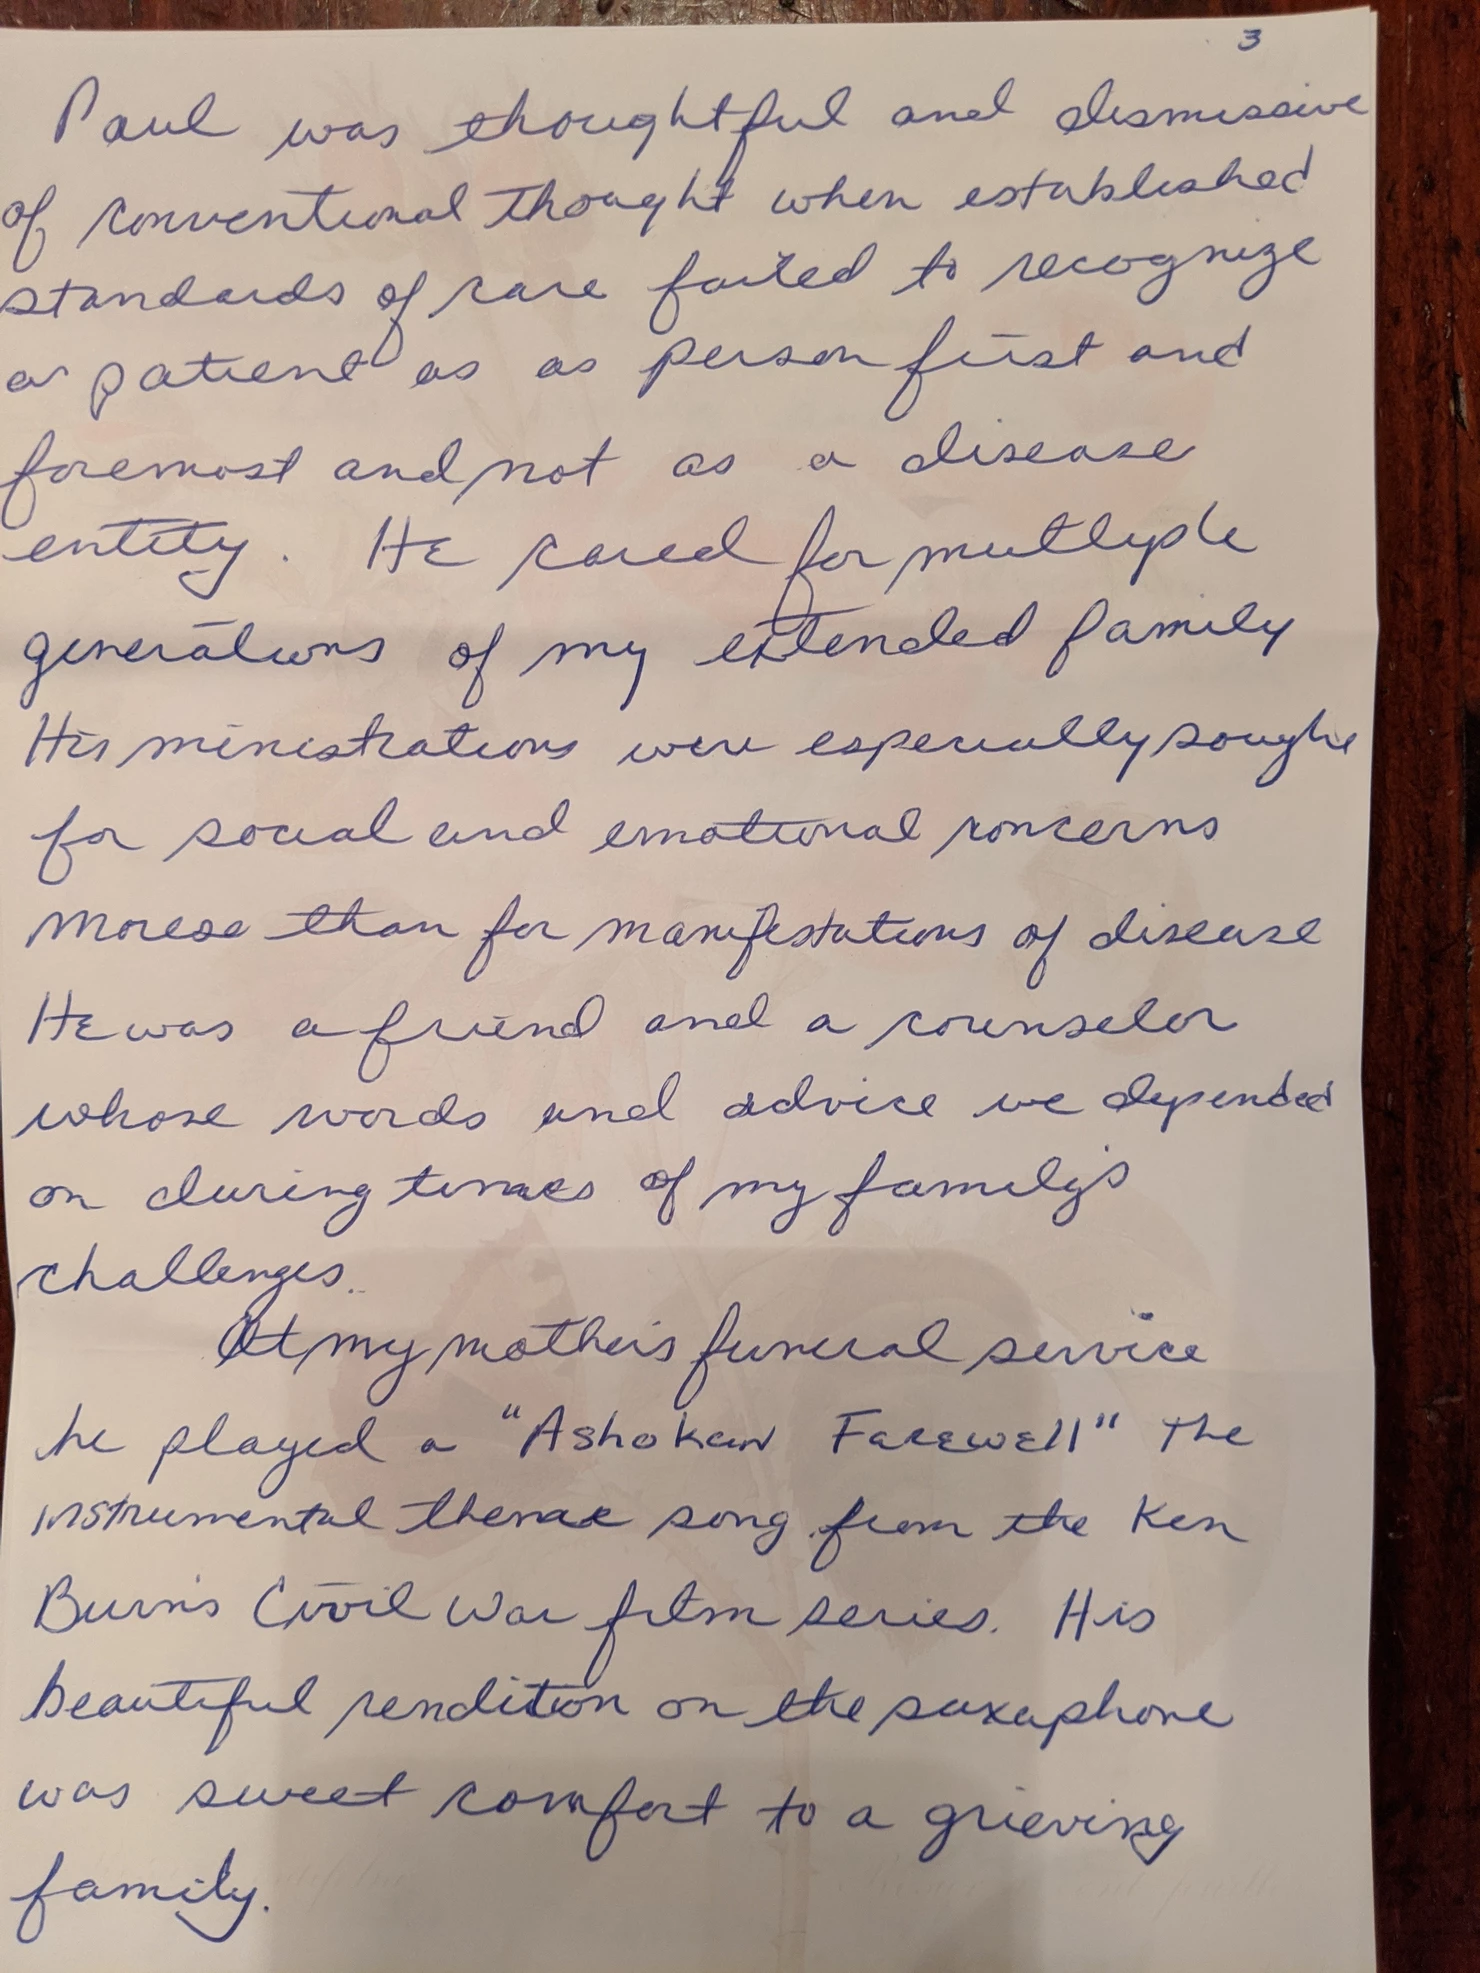 3
Paul was thoughtful and dismissive
of conventional thought when established
standards of care failed to recognize
a patient as as person first and
foremost and not as a disease
entity. He cared for mutliple
generations of my extended family
His ministrations were especially sought
for social and emotional concerns
morese than for manifestations of disease
He was a friend and a counselor
whose words and advice we depended
on during times of my family's
challenges.
At my mother's funeral service
he played a "Ashokan Farewell" The
instrumental theme song from the Ken
Burn's Civil War film series. His
beautiful rendition on the saxaphone
was sweet comfort to a grieving
family.